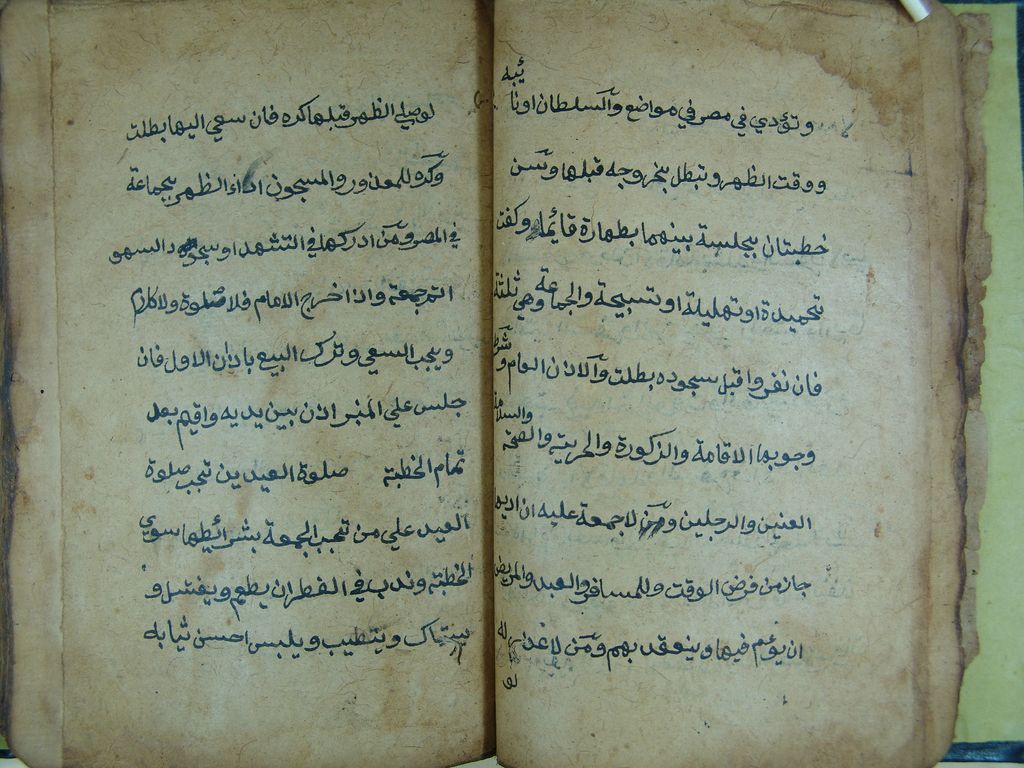 وتؤدي في مصر في مواضع والسلطان او نا
ئبه
ووقت الظهر وتبطل بخروجه قبلها وسن
خطبتان بجلسة بينهما بطهارة قايما وكفت
تحميدة او تهليلة او تسبيحة والجماعة وهي ثلثة
فان نفروا قبل سجوده بطلت والاذن العام وشرط
وجوبها الاقامة والذكورة والحرية والصحة
والسلامة
العنين والرجلين ومن لا جمعة عليه ان اديها
جاز من فرض الوقت وللمسافر والعبد والمريض
ان يؤم فيها وينعقد بهم ومن لا عذر له
لو
لو صلي الظهر قبلها كره فان سعي اليها بطلت
وكره للمعذور والمسجون اداء الظهر بجماعة
في المصر ومن ادركها في التشهد او سجود السهو
اتم جمعة واذا خرج الامام فلا صلوة ولا كلام
ويجب السعي وترك البيع باذان الاول فان
جلس علي المنبر اذن بين يديه واقيم بعد
تمام الخطبة صلوة العيدين تجب صلوة
العيد علي من تجب الجمعة بشرائطها سوي
الخطبة وندب في الفطر ان يطعم ويغتسل و
يستاك ويتطيب ويلبس احسن ثيابه